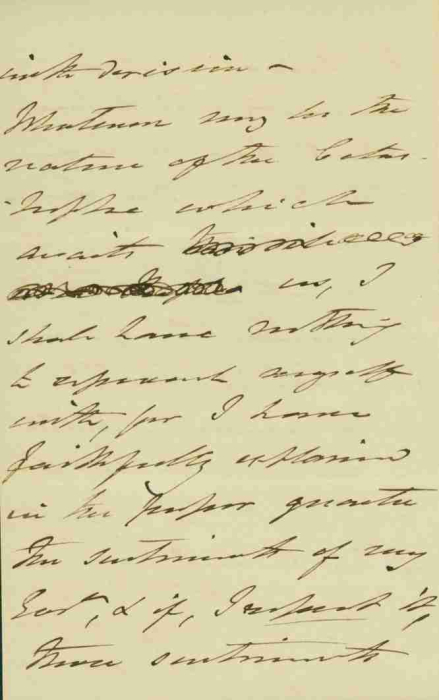 with derision –
Whatever may be the
nature of the Catas-
-trophe which
awaits
us, I
shall have nothing
to reproach myself
with, for I have
faithfully explained
in the proper quarter
the sentiments of my
Govt, & if, I repeat it,
these sentiments